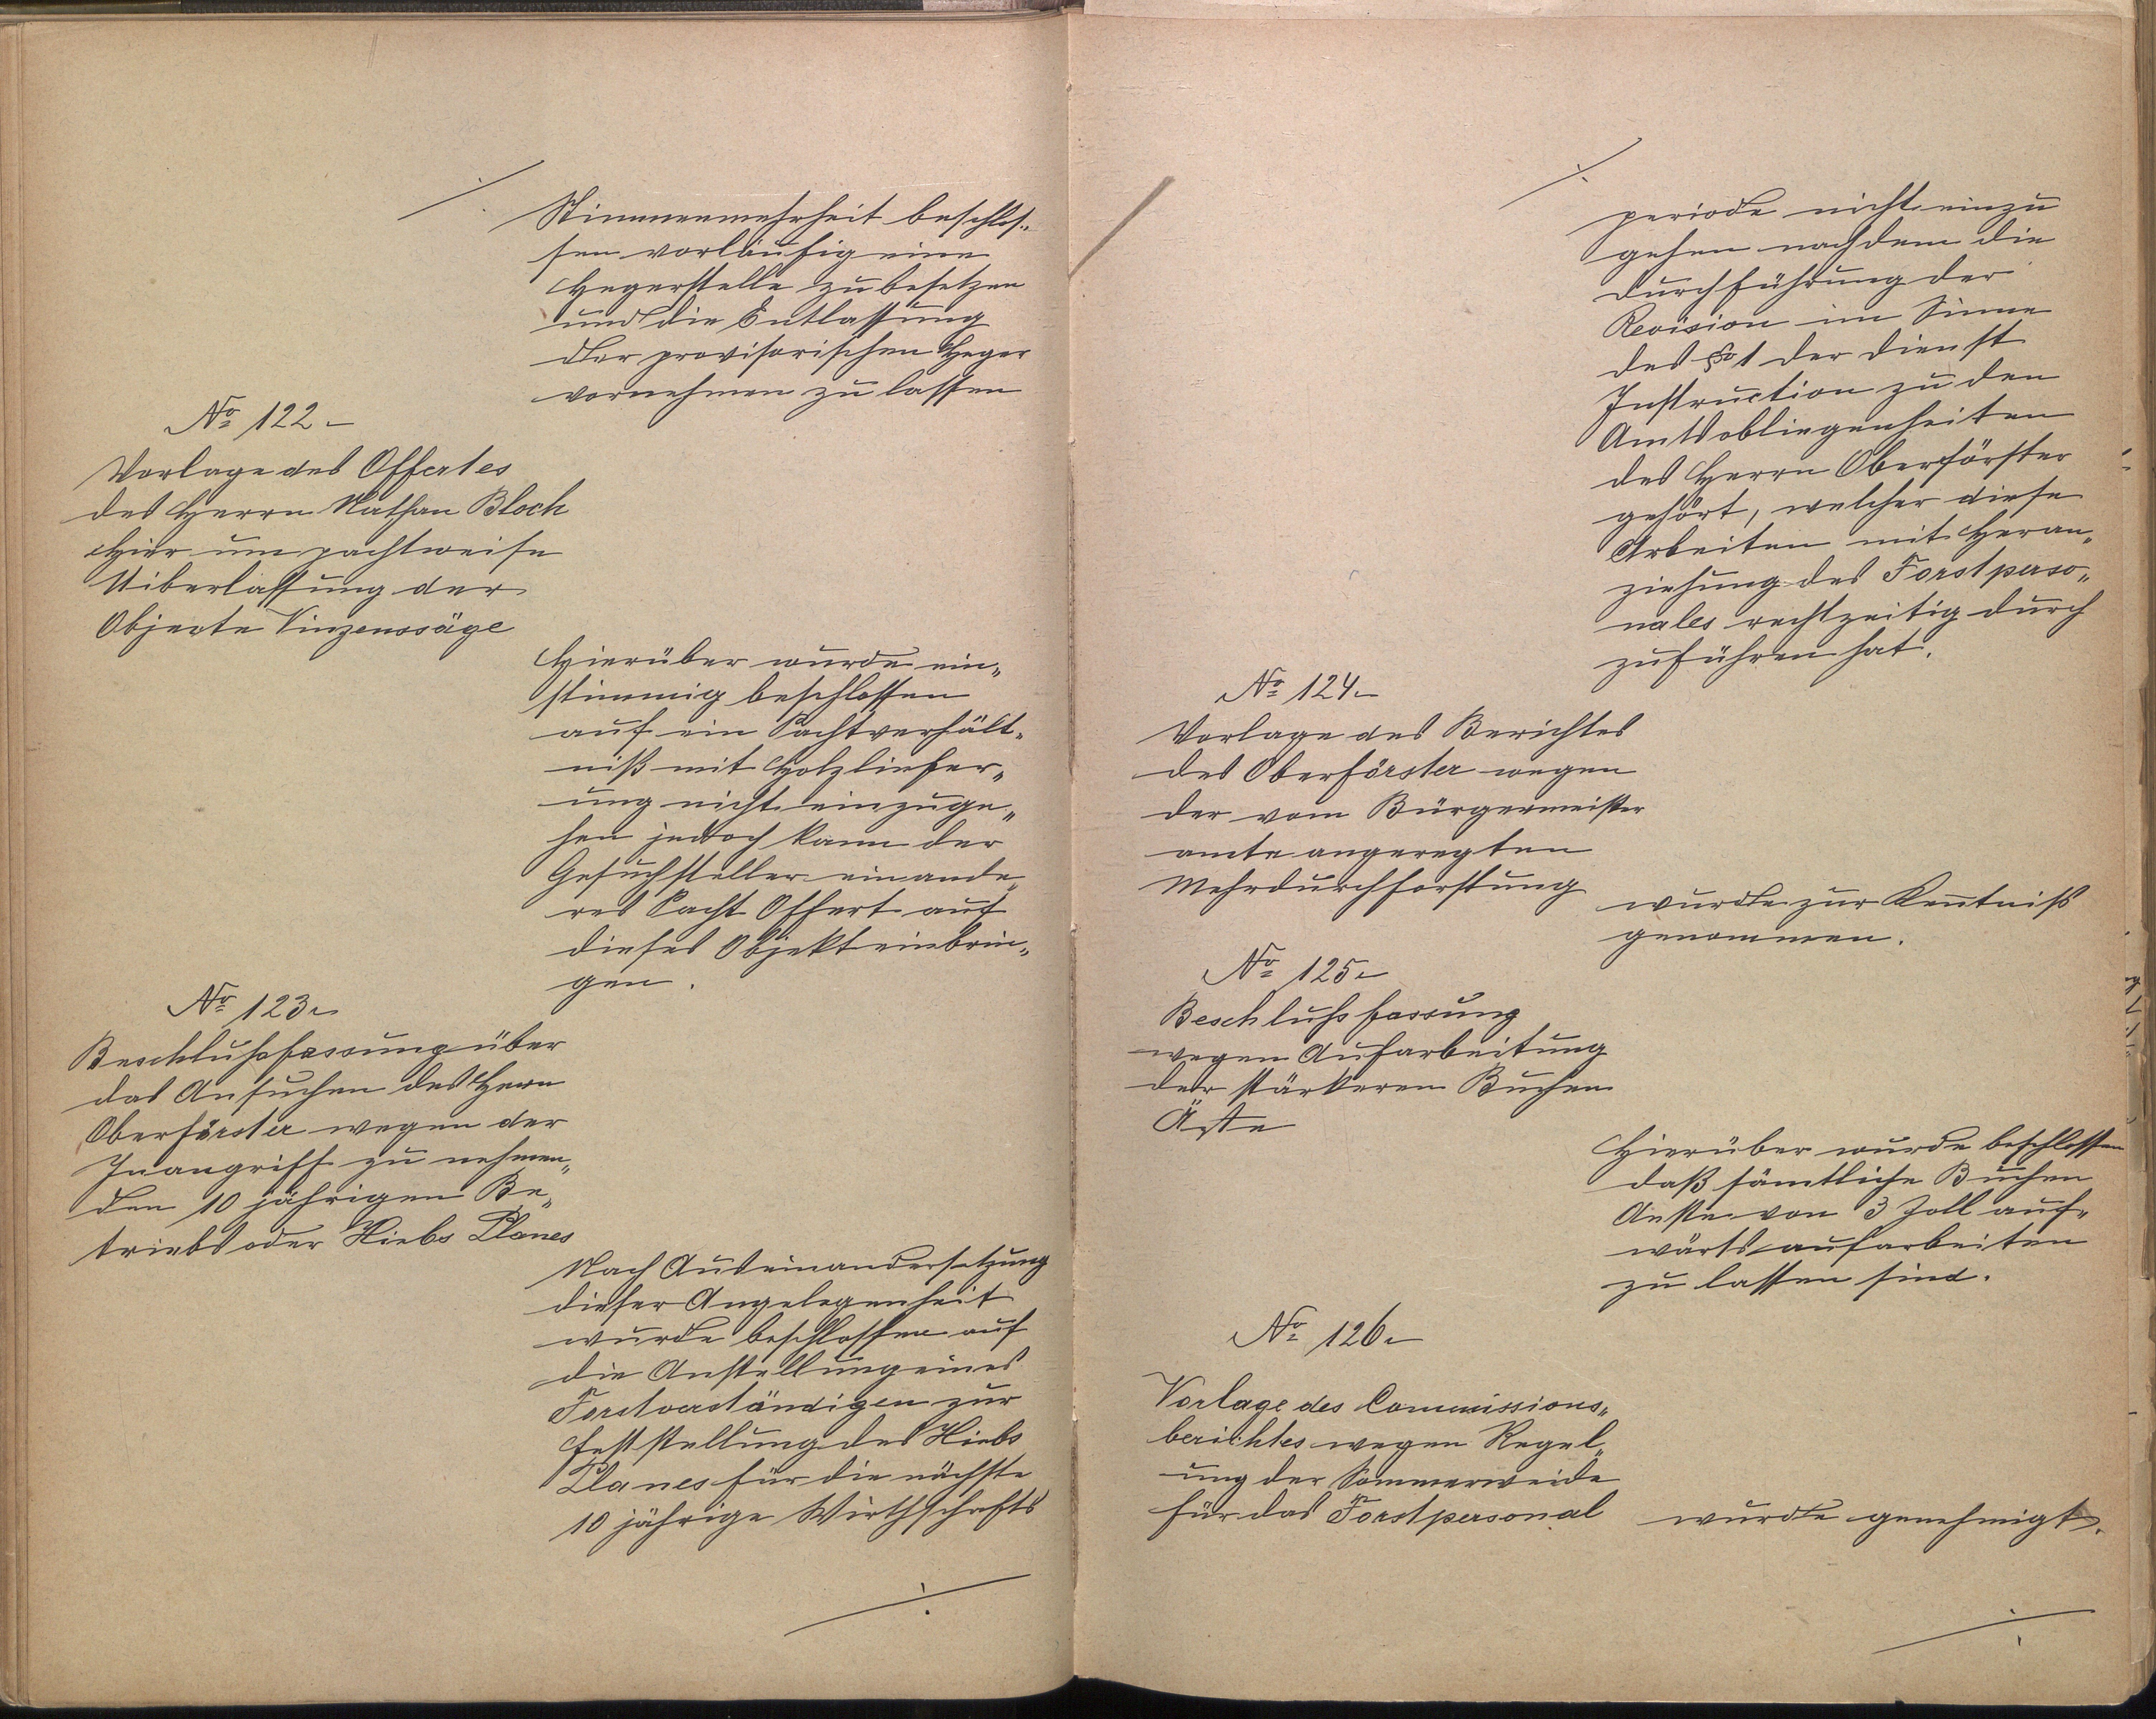 Stimmenmehrheit beschlos-
sen vorläufig eine
Hegerstelle zu besetzen
und die Entlassung
der provisorischen Heger
vornehmen zu lassen
No 122
Vorlage des Offertes
des Herrn Nathan Bloch
hier um pachtweise
Uiberlassung der
Objecte Vinzenssäge
Hierüber wurde ein„
stimmig beschlossen
auf ein Pachtverhält„
niß mit Holzliefer„
ung nicht einzuge„
hen jedoch kann der
Gesuchsteller ein ande„
res Pacht Offert auf
dieses Objekt einbrin„
gen.
No 123
Beschlußfassung über
das Ansuchen des Herrn
Oberförster wegen der
Inangriff zu nehmen„
den 10 jährigen Be„
triebs oder Hiebs Planes
Nach Auseinandersetzung
dieser Angelegenheit
wurde beschlossen auf
die Anstellung eines
Forstverständigen zur
Feststellung des Hiebs
Planes für die nächste
10 jährige Wirthschafts
periode nicht einzu
gehen nachdem die
Durchführung der
Revision im Sinne
des § 1 der Dienst
Instruction zu den
Amtsobliegenheiten
des Herrn Oberförster
gehört, welcher diese
Arbeiten mit Heran„
ziehung des Forstperso„
nales rechtzeitig durch
zuführen hat.
No 124
Vorlage des Berichtes
des Oberförster wegen
der vom Bürgermeister
amte angeregten
Mehrdurchforstung
wurde zur Kenntniß
genommen.
No 125
Beschlußfassung
wegen Aufarbeitung
der stärkeren Buchen
Äste
Hierüber wurde beschlossen
daß sämtliche Buchen
Aeste von 3 Zoll auf„
wärts aufarbeiten
zu lassen sind.
No 126
Vorlage des Commissions„
berichtes wegen Regel„
ung der Sommerweide
für das Forstpersonal
wurde genehmigt.